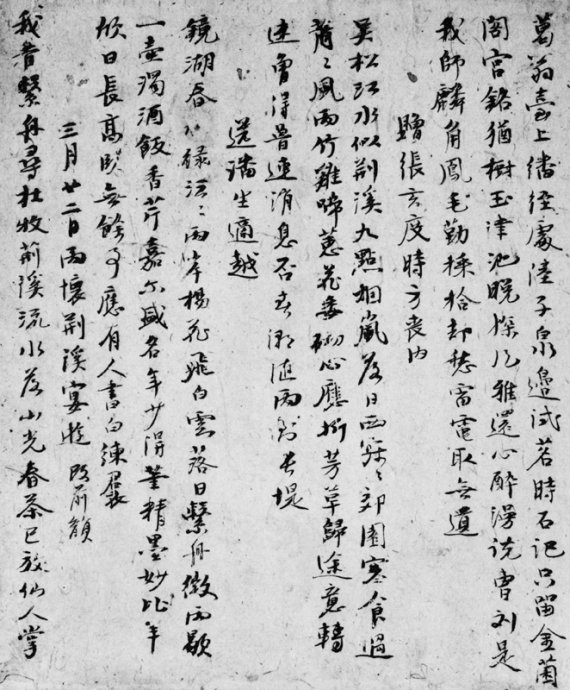 葛翁臺上幡經處陸子泉邊試茗時石記只留金菌
閣宮銘猶樹玉津池晚探風雅還心醉漫説曹劉是
我師麟角鳳毛勤採拾却愁雷電取無遺
贈張玄度時方喪内
吳松江水似荆溪九點烟嵐落日西寂〻郊園寒食過
蕭〻風雨竹雞啼蕙花委砌心應折芳草歸途意轉
迷曾得魯連消息否春潮雨到長堤
送潘生適越
鏡湖春水緑沄〻兩岸楊花飛白雲落日繫舟微雨歇
一壺濁酒飯香芹嘉尔盛名年少得筆精墨妙比年
欣日長高卧無餘事應有人書白練裙
三月廿二日雨懷荆溪宴遊 改前韻
我昔繫舟尋杜牧荆溪流水落山光春茶已放仙人掌